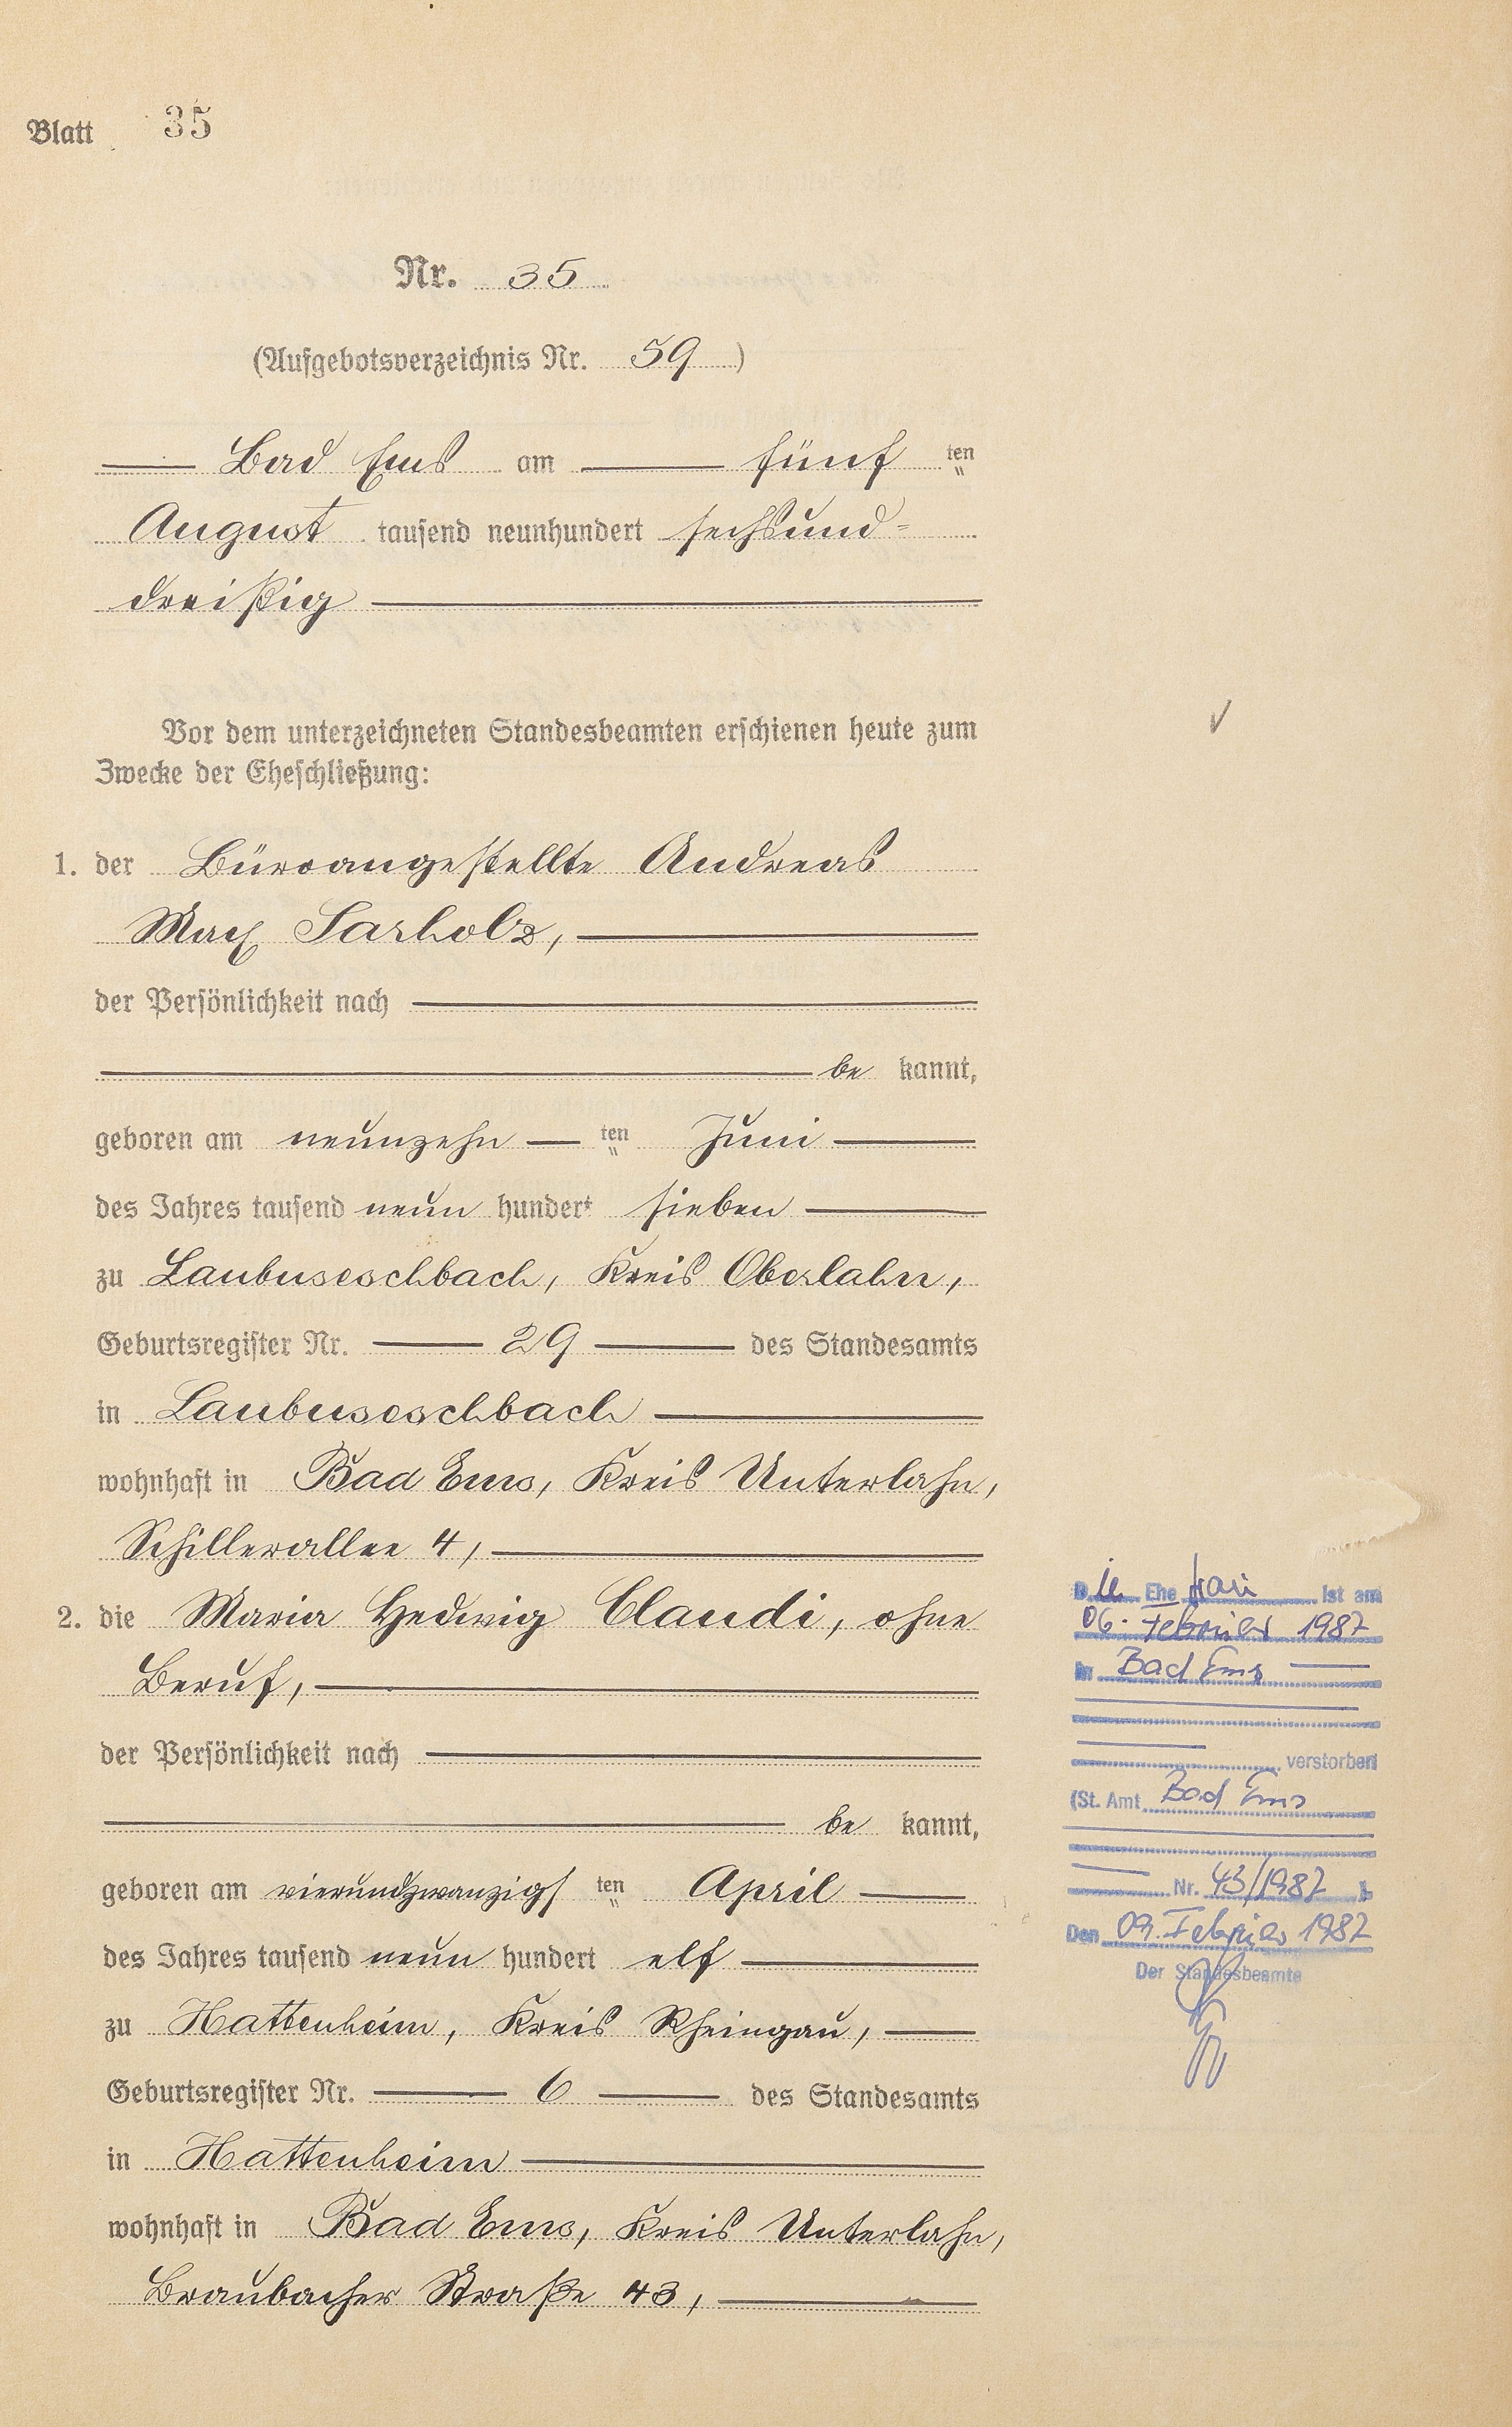 Blatt 35
Nr. 35
(Aufgebotsverzeichnis Nr. 59)
Bad Ems am fünf ten
August tausend neunhundert sechsund-
dreißig
Vor dem unterzeichneten Standesbeamten erschienen heute zum
Zwecke der Eheschließung:
1. der Büroangestellte Andreas
Max Sarholz,
der Persönlichkeit nach
be kannt,
geboren am neunzehn ten Juni
des Jahres tausend neun hundert sieben
zu Laubuseschbach, Kreis Oberlahn,
Geburtsregister Nr. 29 des Standesamts
in Laubuseschbach
wohnhaft in Bad Ems, Kreis Unterlahn,
Schillerallee 4,
2. die Maria Hedwig Claudi, ohne
Beruf,
der Persönlichkeit nach
be kannt,
geboren am vierundzwanzigs ten April
des Jahres tausend neun hundert elf
zu Hattenheim, Kreis Rheingau,
Geburtsregister Nr. 6 des Standesamts
in Hattenheim
wohnhaft in Bad Ems, Kreis Unterlahn,
Braubacher Straße 43,
Die Ehefrau ist am
06. Februar 1987
in Bad Ems
verstorben
(St. Amt Bad Ems
Nr. 43/1987 )
Den 09. Februar 1987
Der Standesbeamte